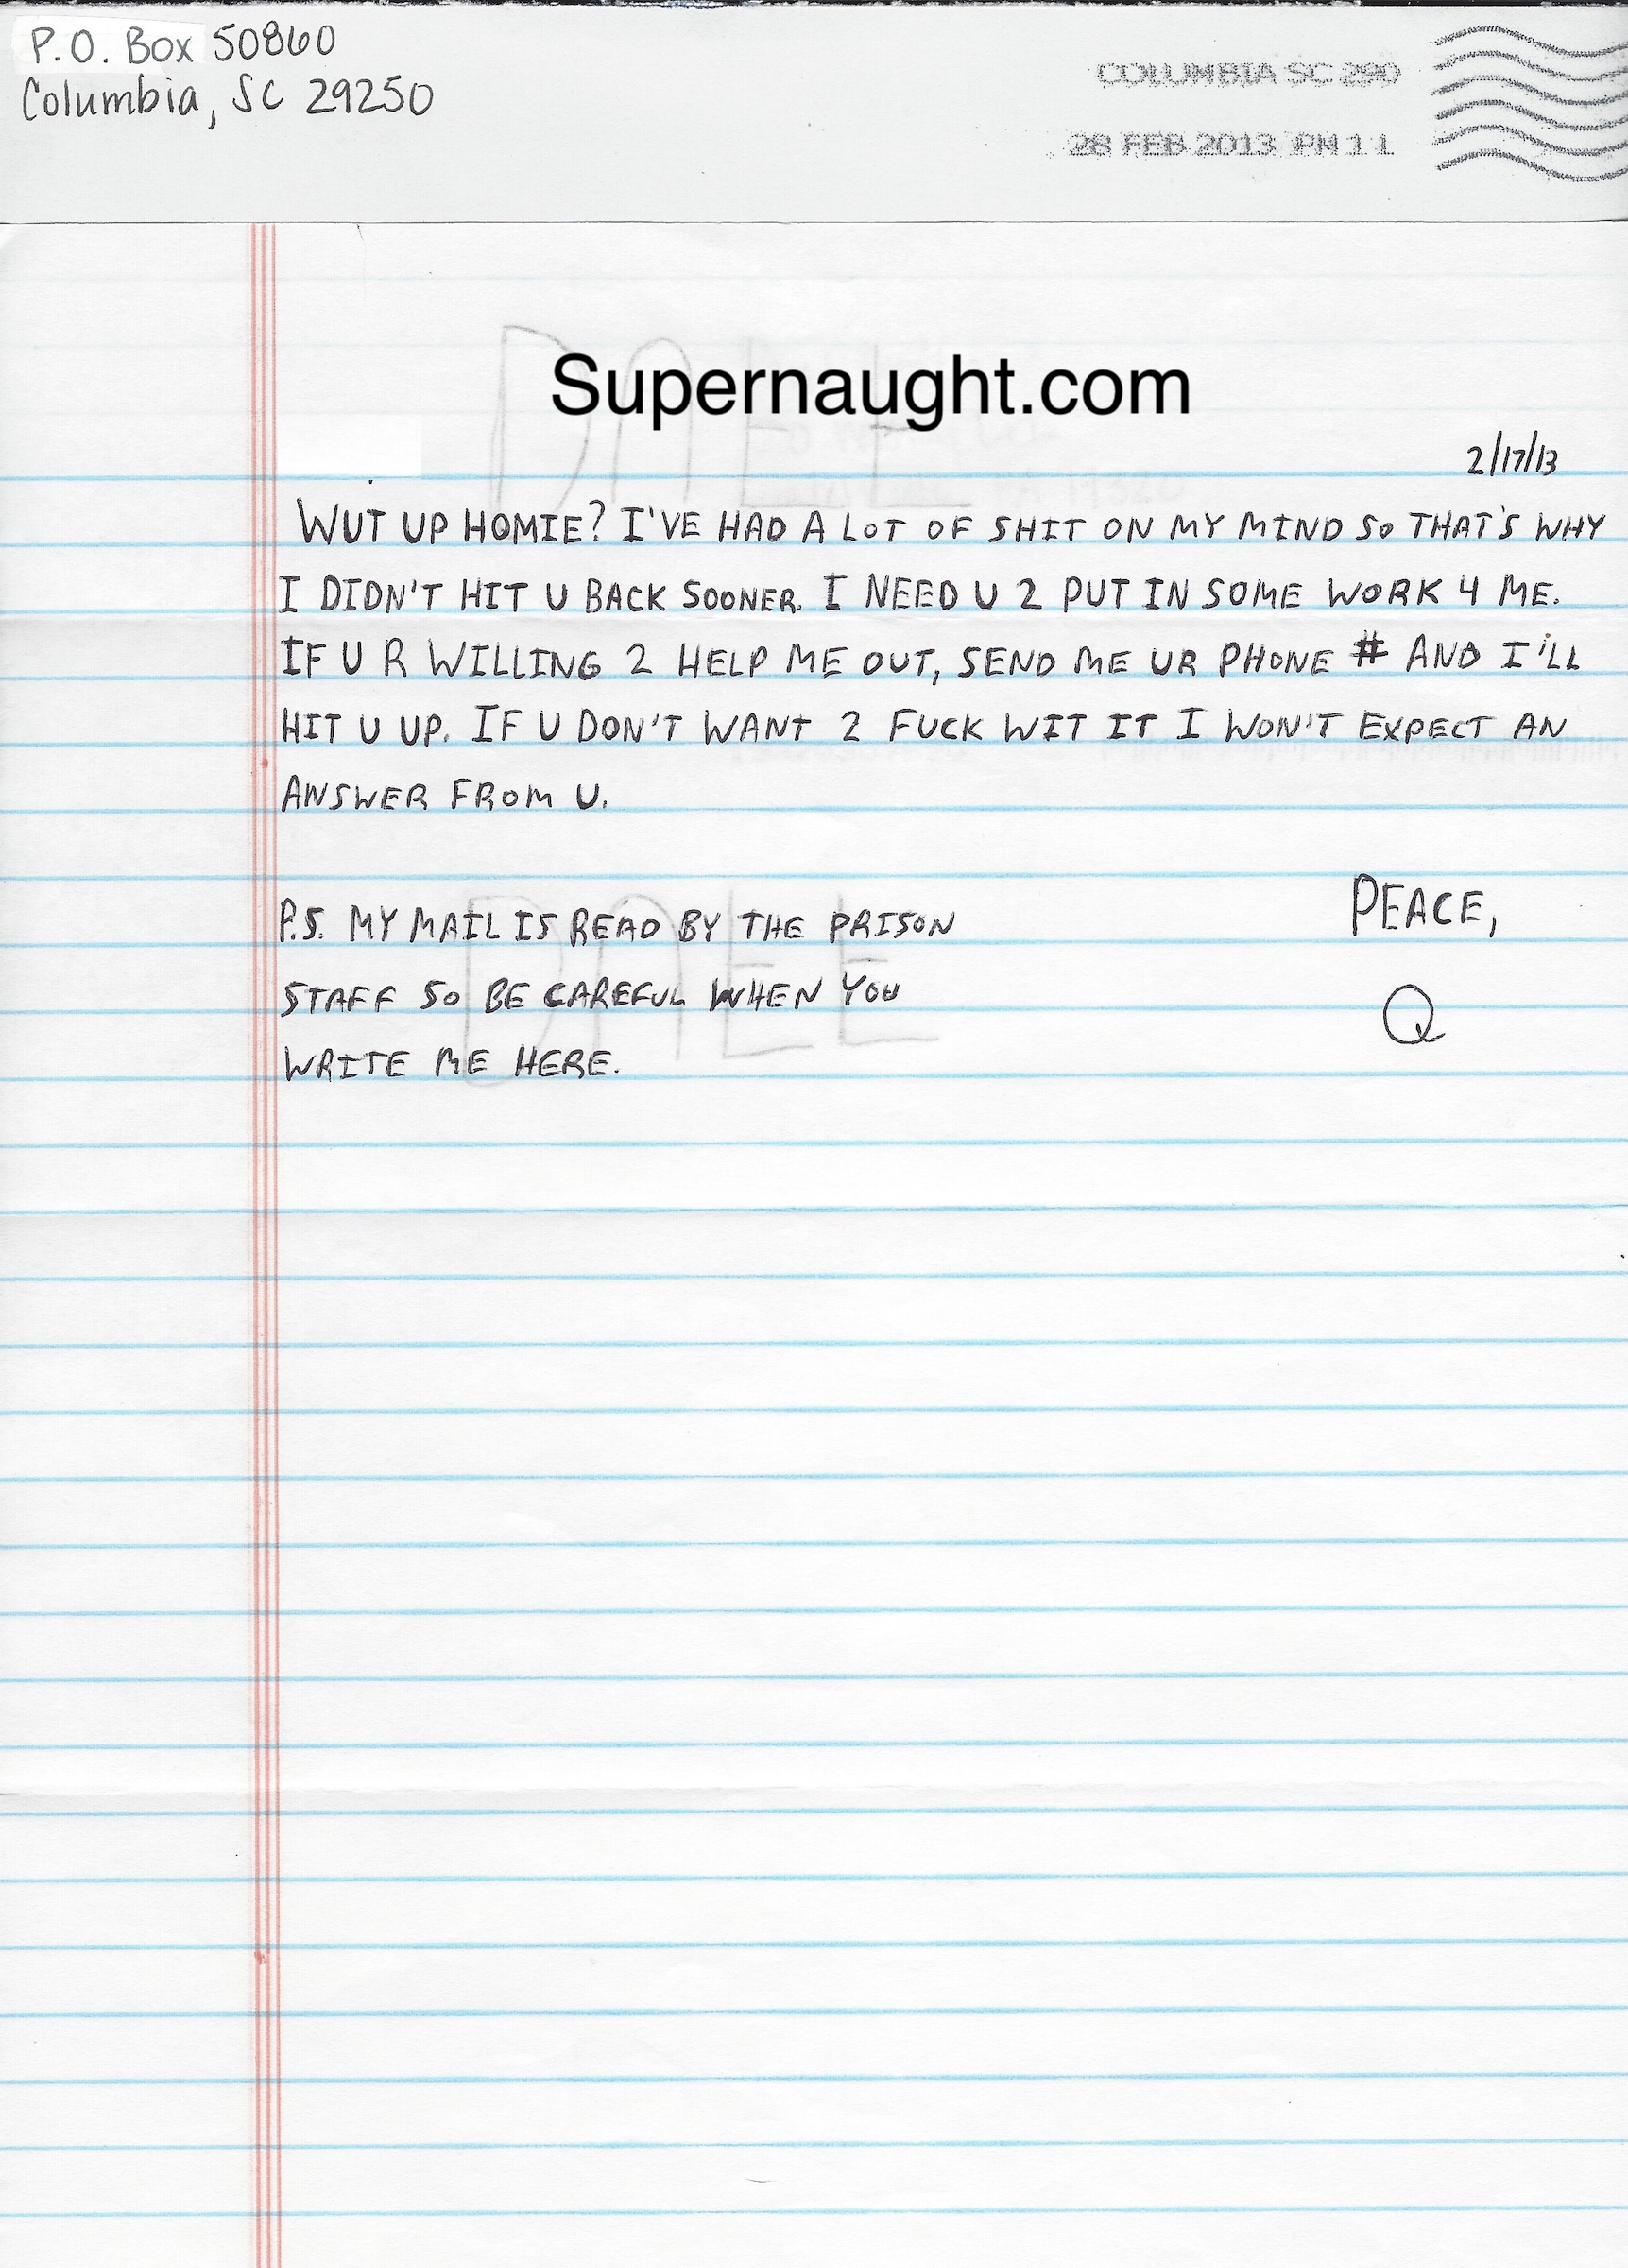 P.O. Box 50860
Columbia, SC 29250
COLUMBIA SC 290
28 FEB 2013 PM 1 L
Supernaught.com
2/17/13
WUT UP HOMIE? I'VE HAD A LOT OF SHIT ON MY MIND SO THAT'S WHY
I DIDN'T HIT U BACK SOONER. I NEED U 2 PUT IN SOME WORK 4 ME.
IF U R WILLING 2 HELP ME OUT, SEND ME UR PHONE # AND I'LL
HIT U UP. IF U DON'T WANT 2 FUCK WIT IT I WON'T EXPECT AN
ANSWER FROM U.
P.S. MY MAIL IS READ BY THE PRISON
STAFF SO BE CAREFUL WHEN YOU
WRITE ME HERE.
PEACE,
Q